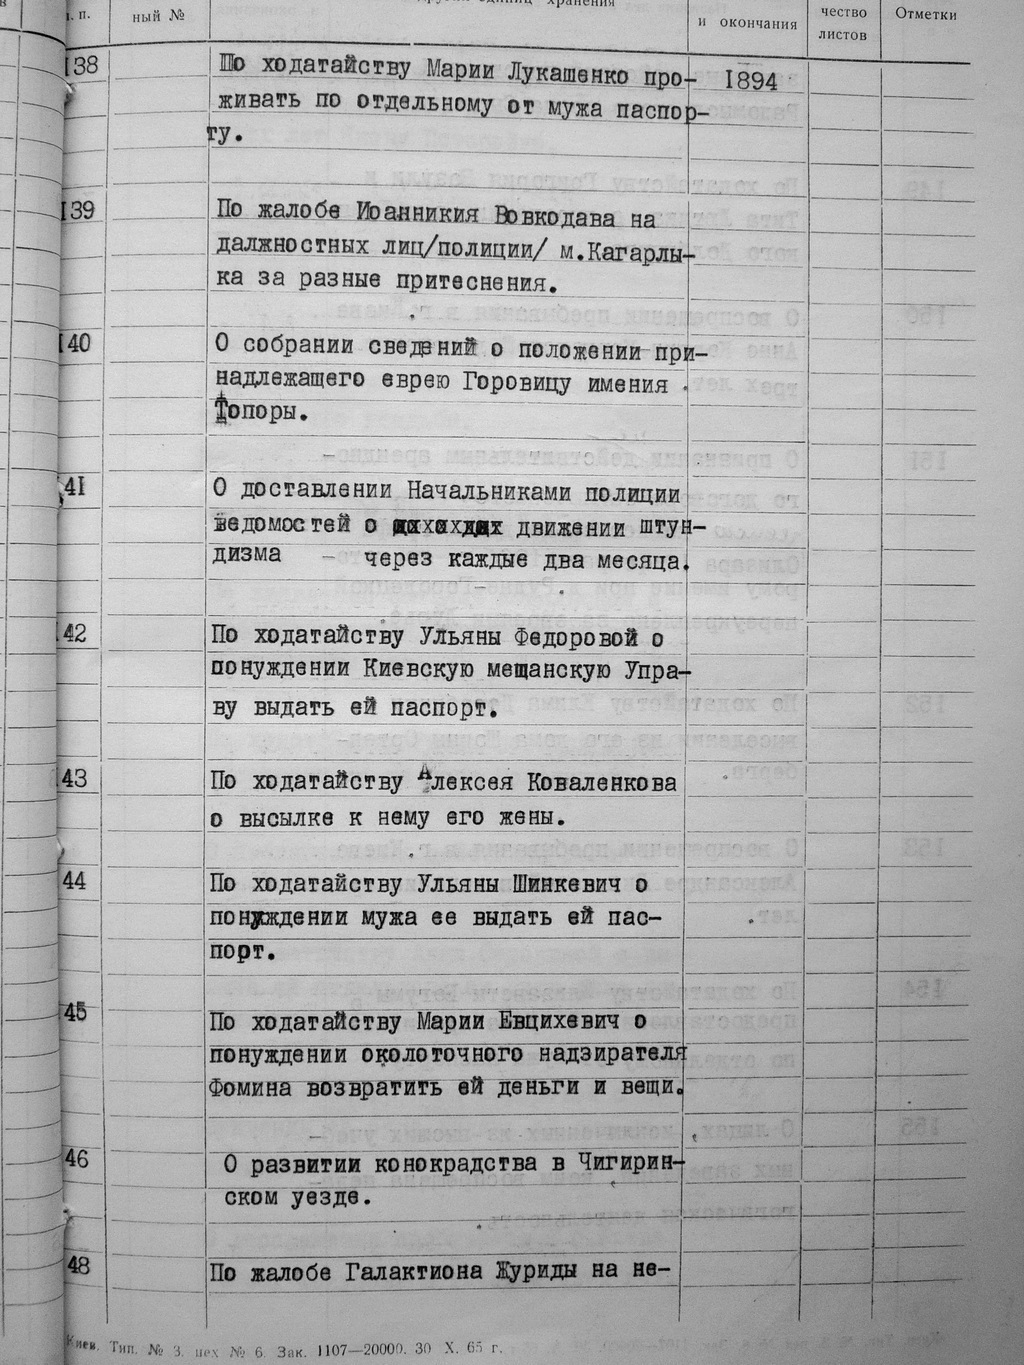 в
п. п.
ный №
других единиц хранения
и окончания
чество
листов
Отметки
I38
По ходатайству Марии Лукашенко про-
I894
живать по отдельному от мужа паспор-
ту.
I39
По жалобе Иоанникия Вовкодава на
далжностных лиц/полиции/ м.Кагарлы-
ка за разные притеснения.
I40
О собрании сведений о положении при-
надлежащего еврею Горовицу имения
Топоры.
4I
О доставлении Начальниками полиции
ведомостей о движении штун-
дизма через каждые два месяца.
42
По ходатайству Ульяны Федоровой о
понуждении Киевскую мещанскую Упра-
ву выдать ей паспорт.
43
По ходатайству Алексея Коваленкова
о высылке к нему его жены.
44
По ходатайству Ульяны Шинкевич о
понуждении мужа ее выдать ей пас-
порт.
45
По ходатайству Марии Евцихевич о
понуждении околоточного надзирателя
Фомина возвратить ей деньги и вещи.
46
О развитии конокрадства в Чигирин-
ском уезде.
48
По жалобе Галактиона Журиды на не-
Киев. Тип. № 3. цех № 6. Зак. 1107—20000. 30 X. 65 г.